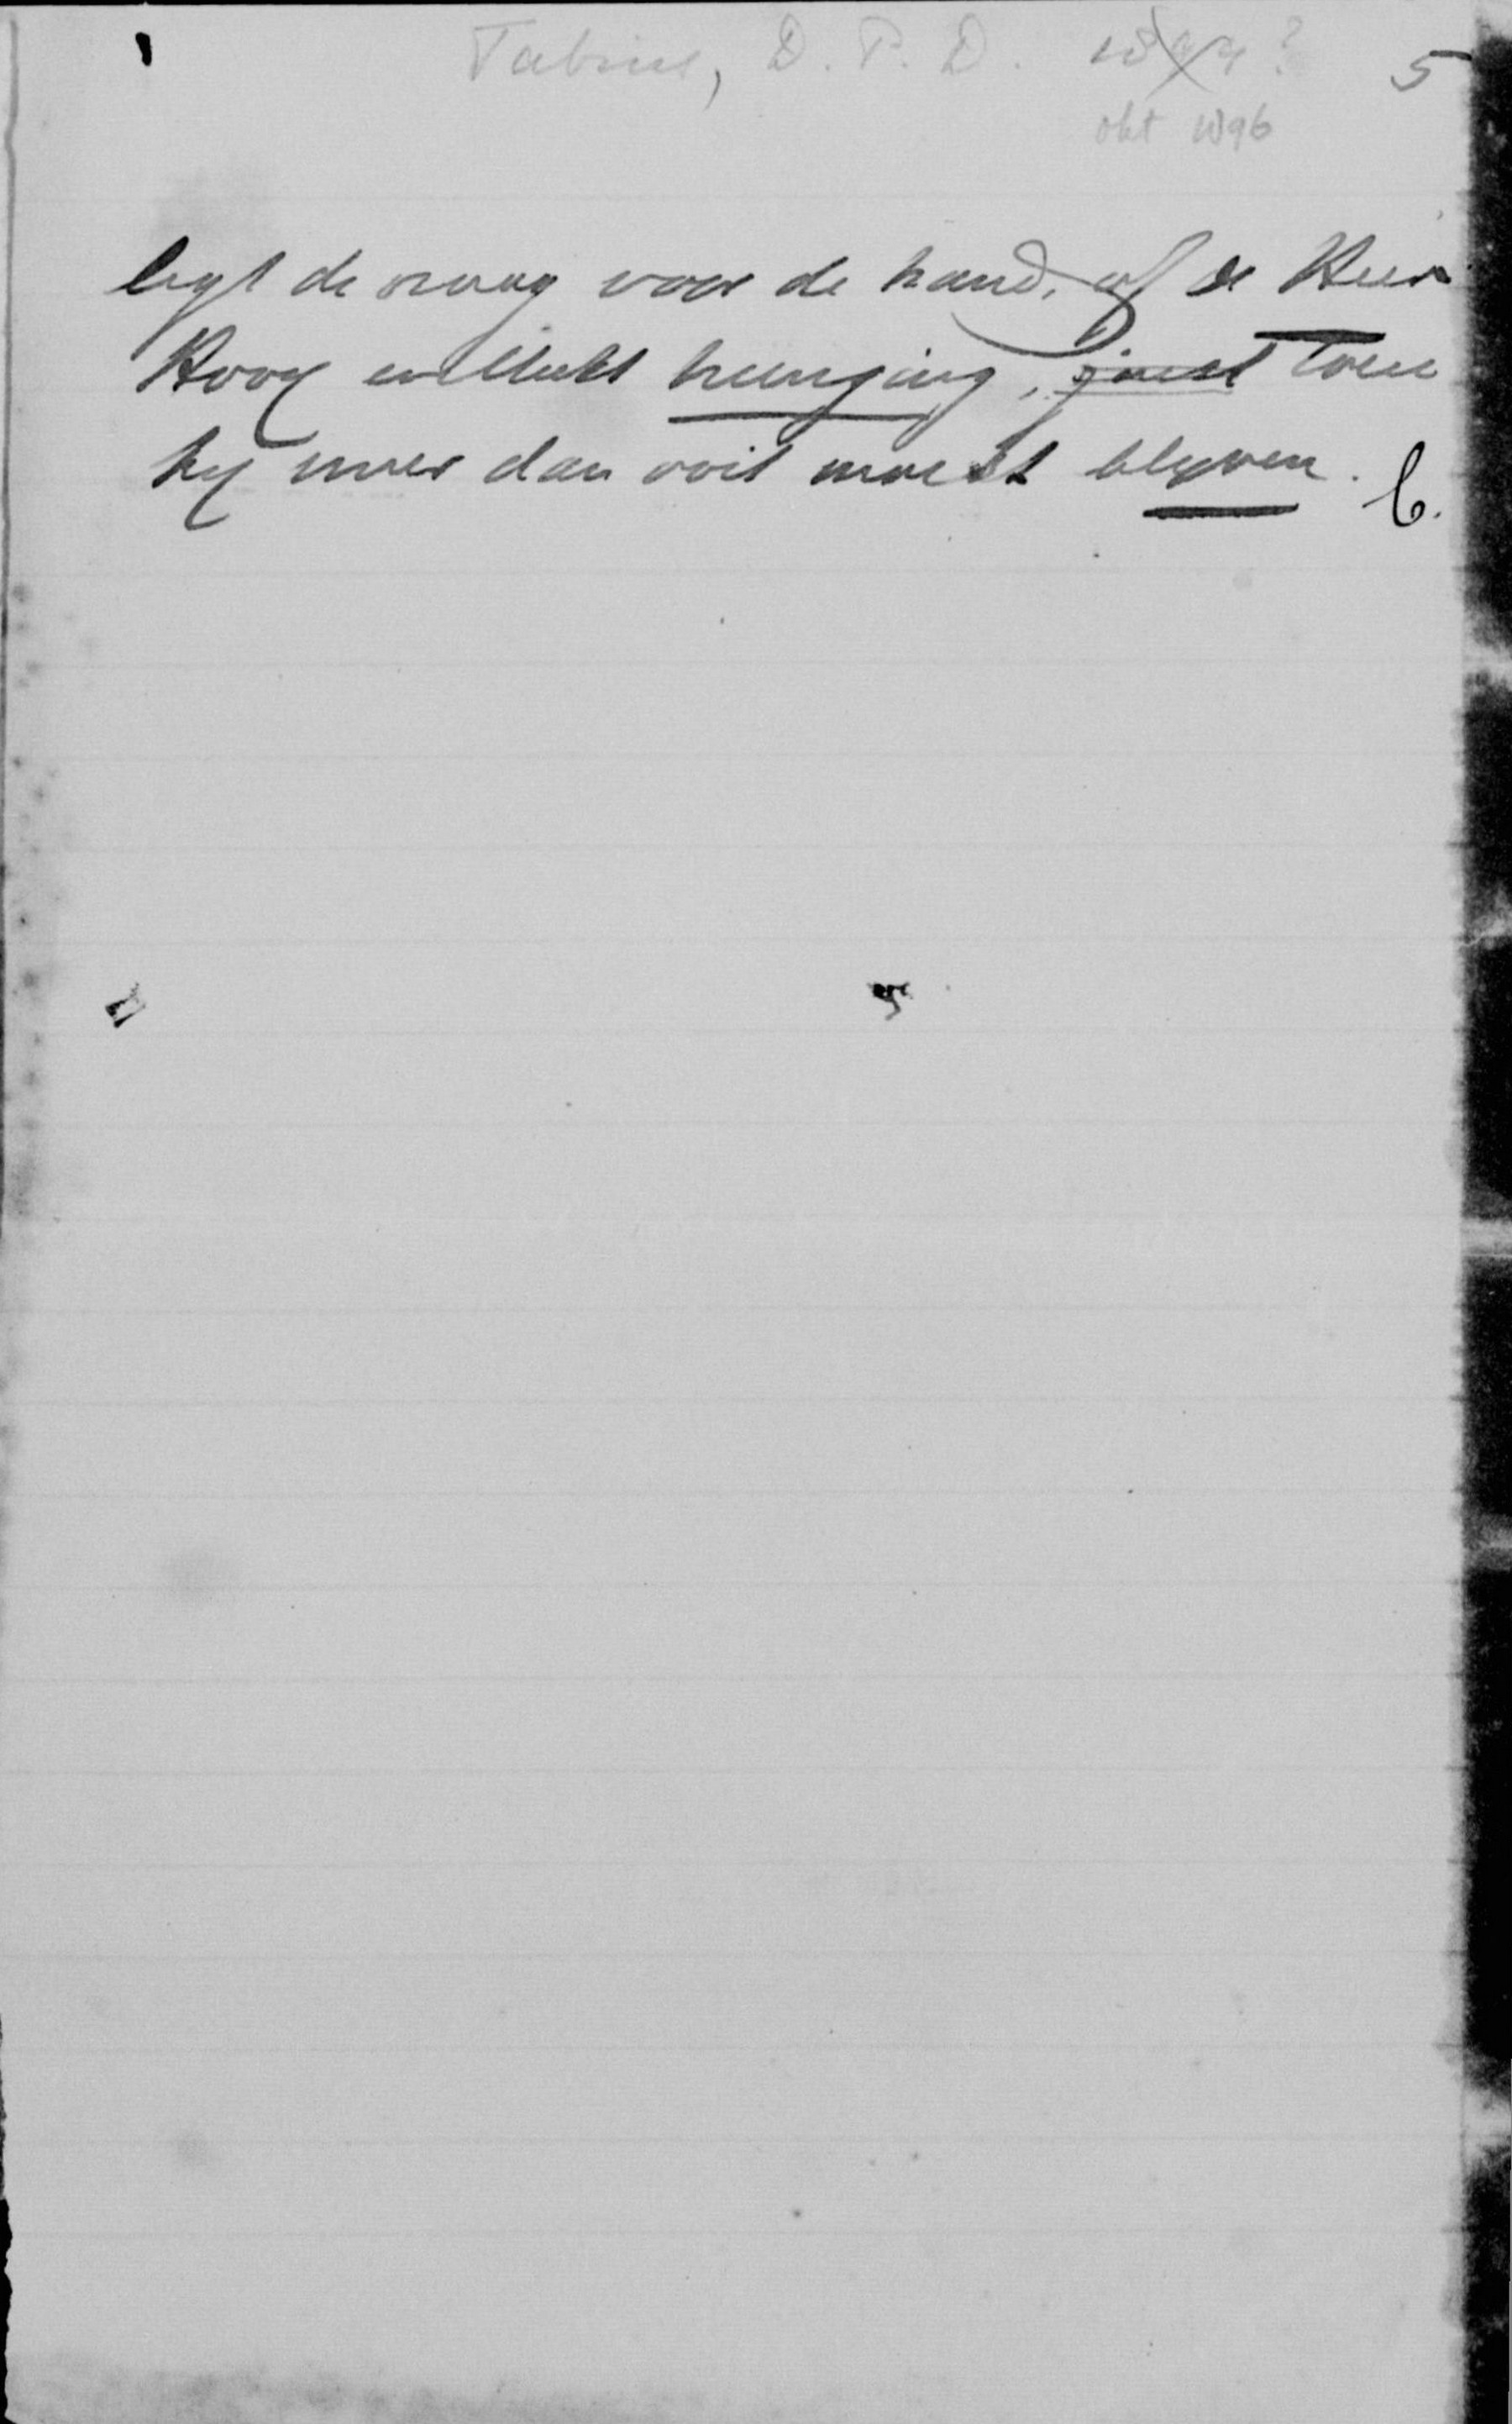 Fabius, D. P. D. 5
okt 1896
legt de vraag voor de hand, of de Heer
Hoog wellicht heenging, juist toen
hij meer dan ooit moest blijven. C.